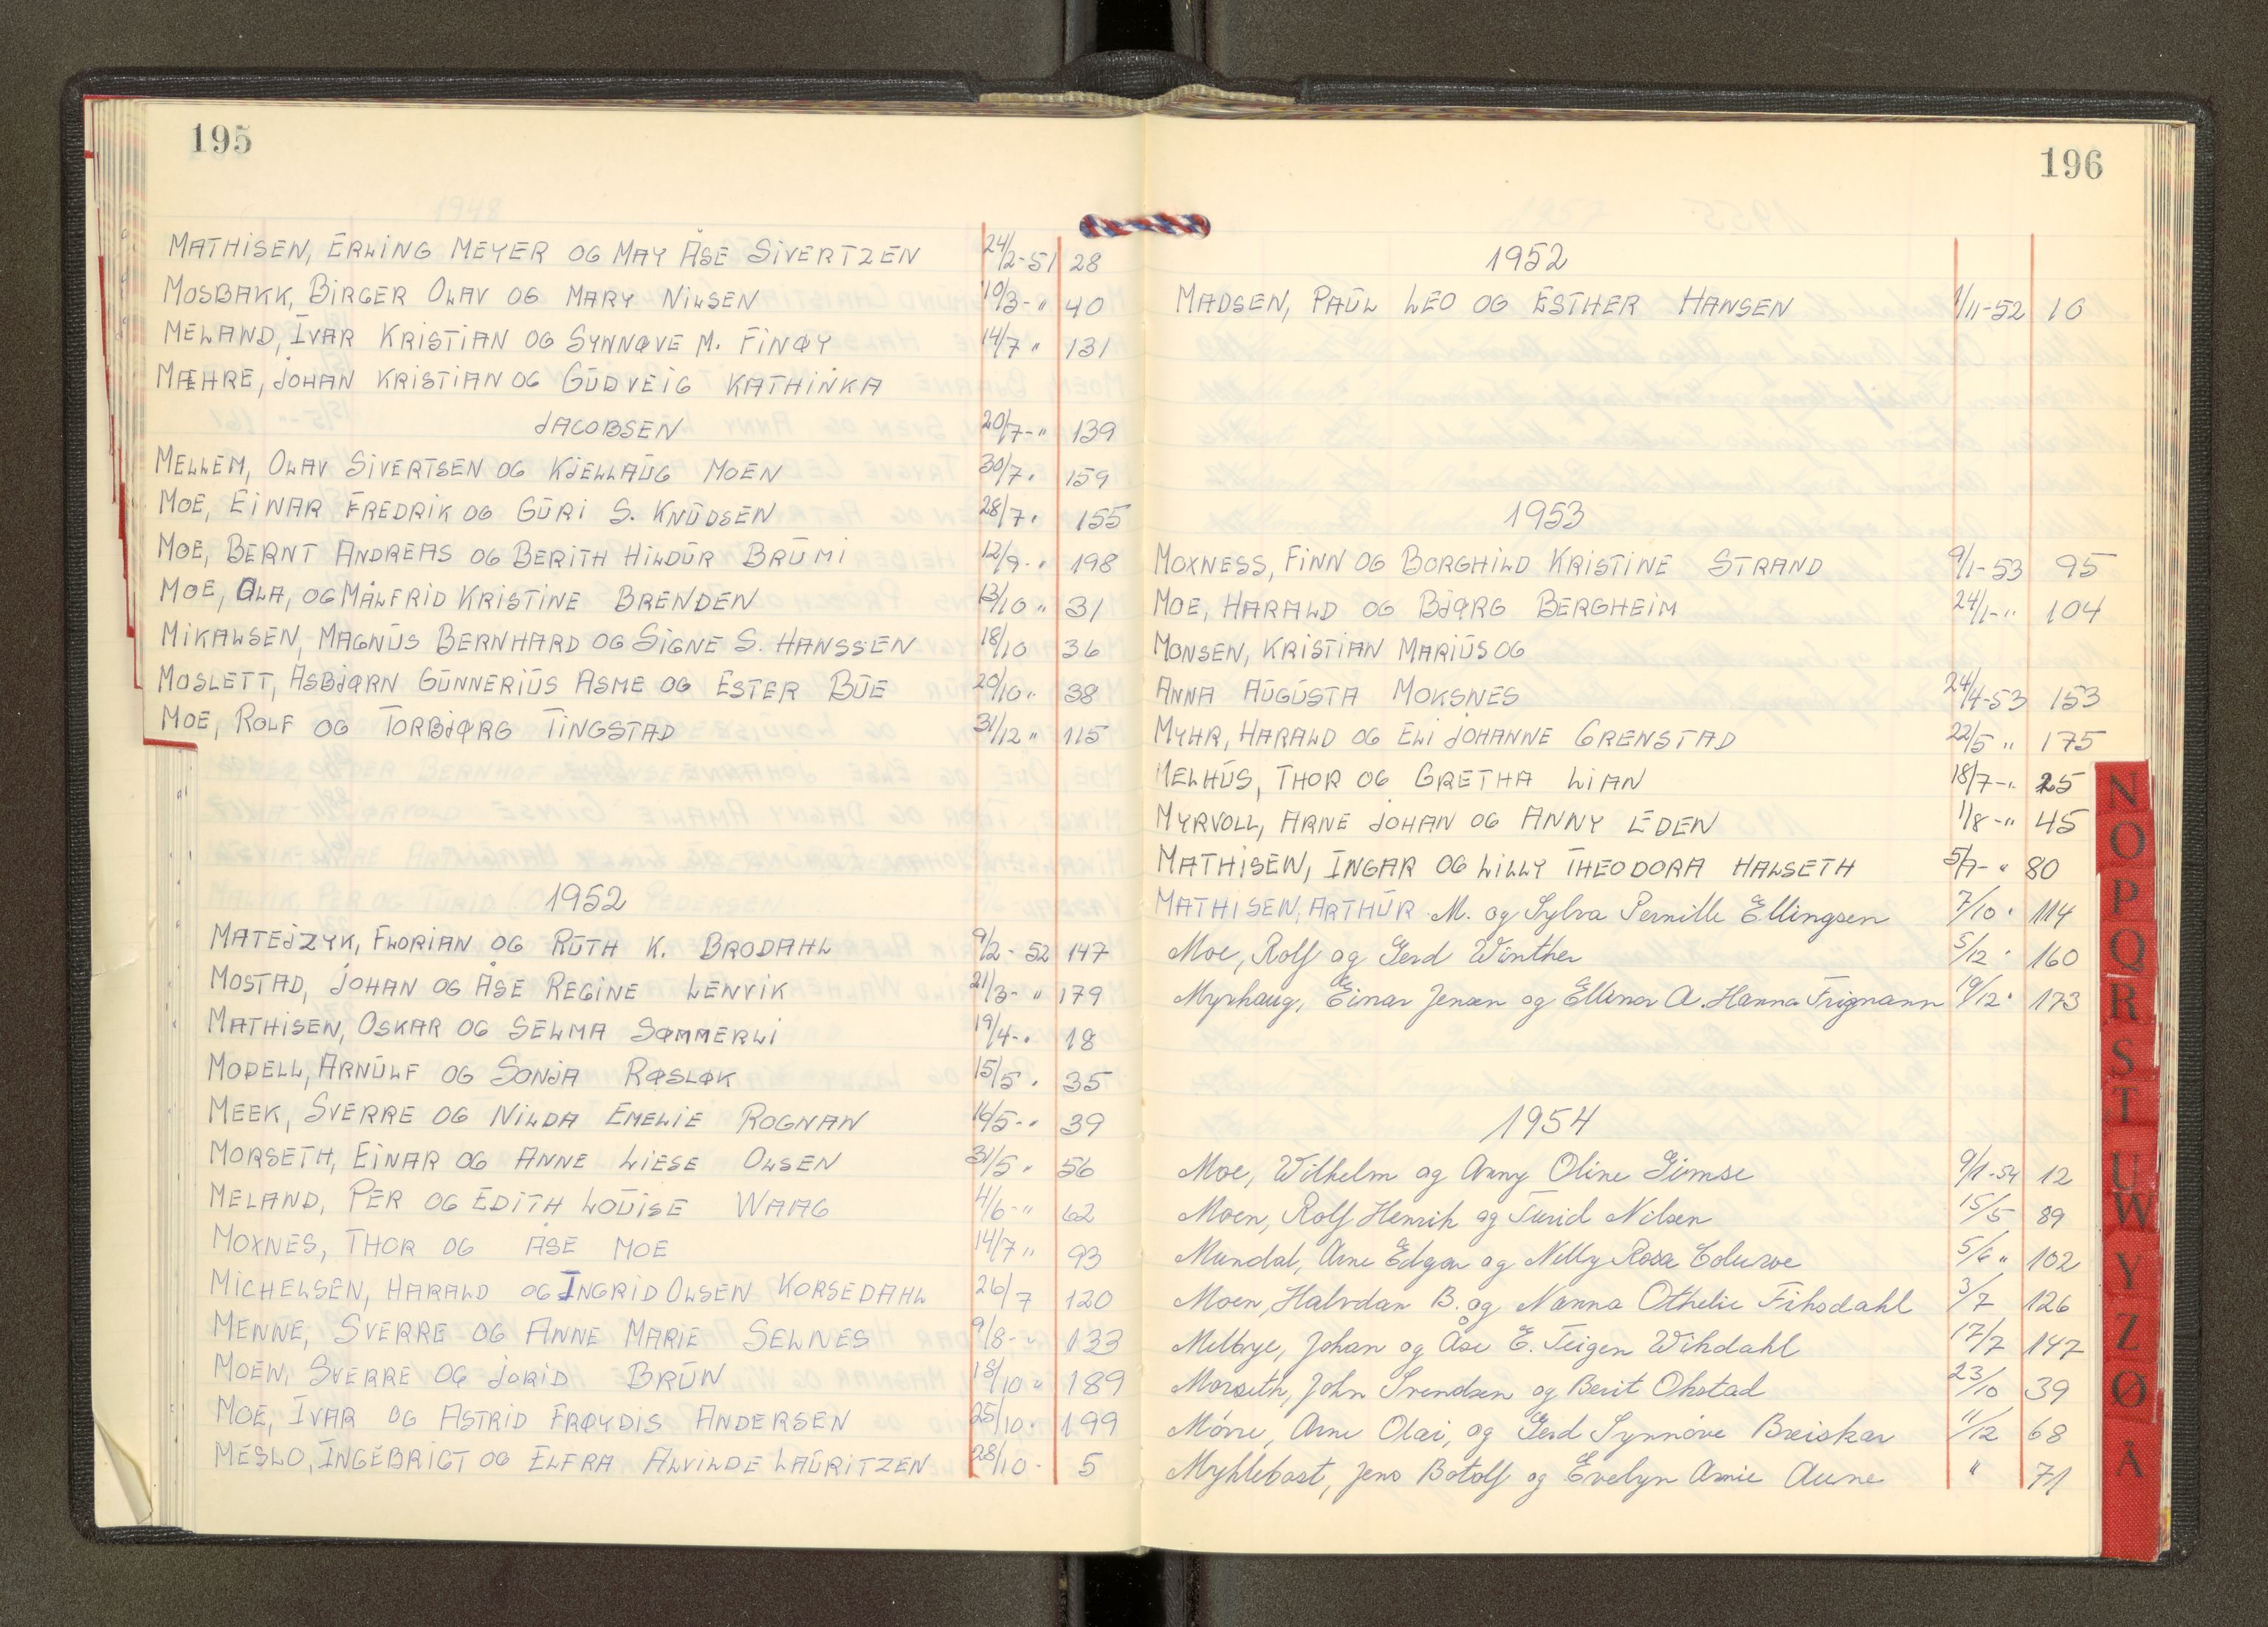 195
MATHISEN, ERLING MEYER OG MAY ÅSE SIVERTZEN 24/2-51 28
MOSBAKK, BIRGER OLAV OG MARY NILSEN 10/3-" 40
MELAND, IVAR KRISTIAN OG SYNNØVE M. FINØY 14/7 " 131
MÆHRE, JOHAN KRISTIAN OG GUDVEIG KATHINKA
JACOBSEN 20/7-" 139
MELLEM, OLAV SIVERTSEN OG KJELLAUG MOEN 30/7 " 159
MOE, EINAR FREDRIK OG GURI S. KNUDSEN 28/7 " 155
MOE, BERNT ANDREAS OG BERITH HILDUR BRUMI 12/9-" 198
MOE, OLA, OG MÅLFRID KRISTINE BRENDEN 13/10 " 31
MIKALSEN, MAGNUS BERNHARD OG SIGNE S. HANSSEN 18/10 36
MOSLETT, ASBJØRN GUNNERIUS ASME OG ESTER BUE 20/10 " 38
MOE, ROLF OG TORBJØRG TINGSTAD 31/12 " 115
1952
MATEJZYK, FLORIAN OG RUTH K. BRODAHL 9/2-52 147
MOSTAD, JOHAN OG ÅSE REGINE LENVIK 21/3-" 179
MATHISEN, OSKAR OG SELMA SØMMERLI 19/4-" 18
MODELL, ARNULF OG SONJA RØSLØK 15/5 " 35
MEEK, SVERRE OG NILDA EMELIE ROGNAN 16/5-" 39
MORSETH, EINAR OG ANNE LIESE OLSEN 31/5 " 56
MELAND, PER OG EDITH LOUISE WAAG 4/6-" 62
MOXNES, THOR OG ÅSE MOE 14/7 " 93
MICHELSEN, HARALD OG INGRID OLSEN KORSEDAHL 26/7 120
MENNE, SVERRE OG ANNE MARIE SELNES 9/8-" 133
MOEN, SVERRE OG JORID BRUN 18/10 " 189
MOE, IVAR OG ASTRID FRØYDIS ANDERSEN 25/10 " 199
MESLO, INGEBRIGT OG ELFRA ALVILDE LAURITZEN 28/10 - 5
196
1952
MADSEN, PAUL LEO OG ESTHER HANSEN 1/11-52 10
1953
MOXNESS, FINN OG BORGHILD KRISTINE STRAND 9/1-53 95
MOE, HARALD OG BJØRG BERGHEIM 24/1-" 104
MONSEN, KRISTIAN MARIUS OG
ANNA AUGUSTA MOKSNES 24/4-53 153
MYHR, HARALD OG ELI JOHANNE GRENSTAD 22/5 " 175
MELHUS, THOR OG GRETHA LIAN 18/7-" 25
MYRVOLL, ARNE JOHAN OG ANNY EDEN 1/8-" 45
MATHISEN, INGAR OG LILLY THEODORA HALSETH 5/9-" 80
MATHISEN, ARTHUR M. og Sylva Pernille Ellingsen 7/10 " 114
Moe, Rolf og Gerd Winther 5/12 " 160
Myrhaug, Einar Jensen og Ellinor A. Hanna Frigmann 19/12 " 173
1954
Moe, Wilhelm og Anny Oline Gimse 9/1-54 12
Moen, Rolf Henrik og Turid Nilsen 15/5 89
Mundal, Arne Edgar og Nelly Rosa 5/6 " 102
Moen, Halvdan B. og Nanna Othelie Fiksdahl 3/7 126
Melbye, Johan og Åse E. Teigen Wikdahl 17/7 147
Morseth, John Svendsen og Berit Okstad 23/10 39
Mörre, Arne Olai, og Gerd Synnöve Breiskar 11/12 68
Myklebost, Jens Botolf og Evelyn Amie Aune " 71
N
O
P
Q
R
S
T
U
W
Y
Z
Ø
A